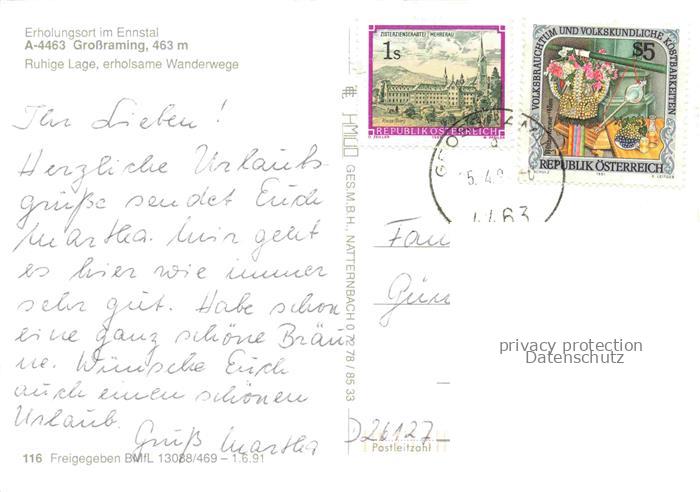 Erholungsort im Ennstal
A-4463 Großraming, 463 m
Ruhige Lage, erholsame Wanderwege
Ihr Lieben!
Herzliche Urlaubs-
grüße sendet Euch
Martha. Mir geht
es hier wie immer
sehr gut. Habe schon
eine ganz schöne Bräu-
ne. Wünsche Euch
auch einen schönen
Urlaub.
Gruß Martha
116 Freigegeben BMfL 13088/469 – 1.6.91
GES.M.B.H., NATTERNBACH 0 72 78 / 85 33
ZISTERZIENSERABTEI MEHRERAU
1s
REPUBLIK ÖSTERREICH
VOLKSBRAUCHTUM UND VOLKSKUNDLICHE KOSTBARKEITEN
S5
REPUBLIK ÖSTERREICH
1991
4463
Fam
Gün
privacy protection
Datenschutz
D 26127
Postleitzahl